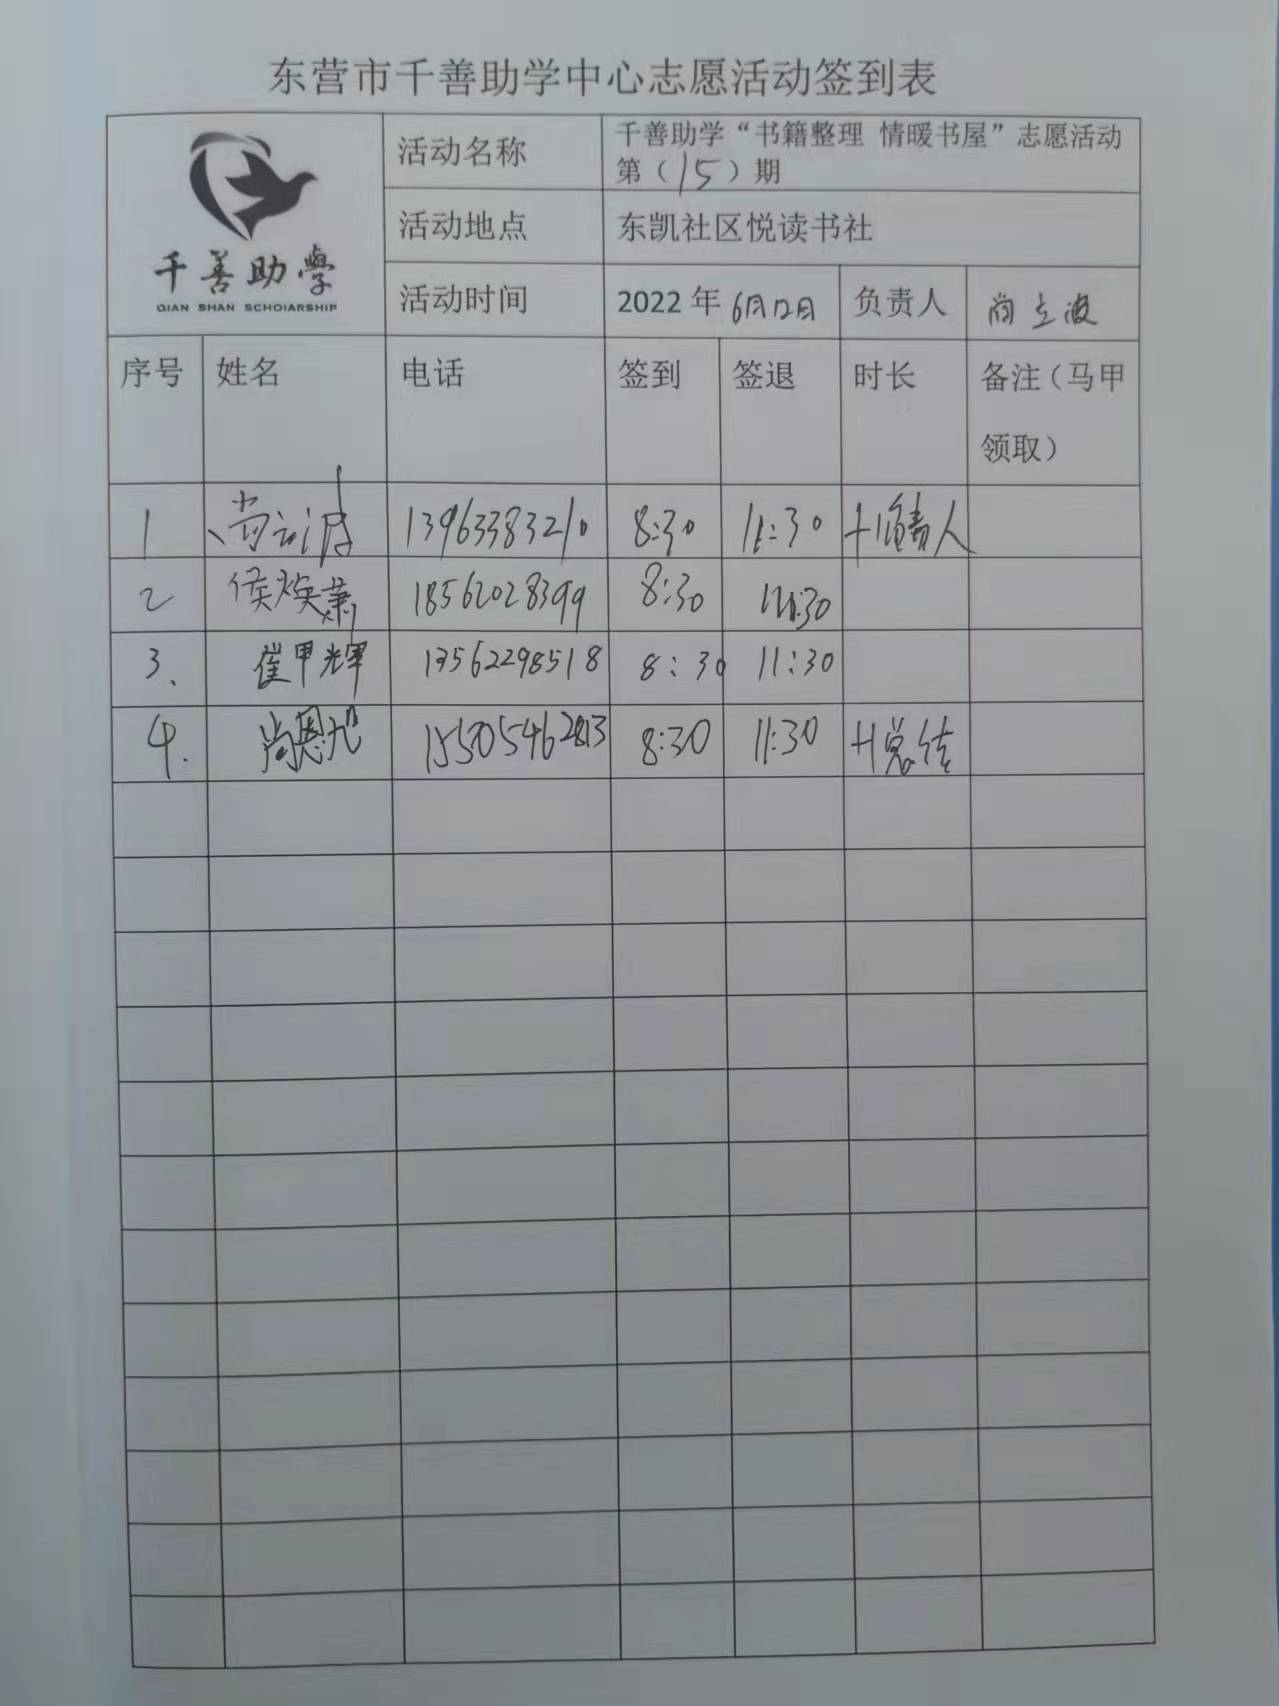 东营市千善助学中心志愿活动签到表
千善助學
QIAN SHAN SCHOIARSHIP
活动名称 千善助学“书籍整理 情暖书屋”志愿活动
第（15）期
活动地点 东凯社区悦读书社
活动时间 2022年6月12日 负责人 尚立波
序号 姓名 电话 签到 签退 时长 备注（马甲
领取）
1 尚立波 13963383210 8:30 11:30 +1负责人
2 侯焕 18562028399 8:30 11:30
3、 崔甲辉 13562298518 8:30 11:30
4. 尚恩旭 15505462813 8:30 11:30 +1总结